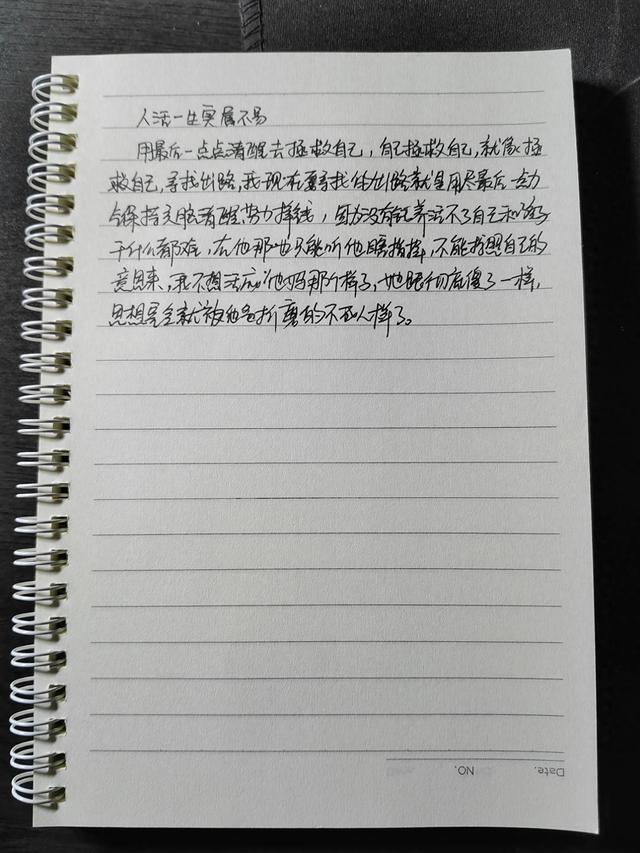 人活一生实属不易
用最后一点点清醒去拯救自己，自己拯救自己，就像拯
救自己，寻找出路，我现在要寻找的出路就是用尽最后一点力
保持头脑清醒，努力挣钱，因为没有钱养活不了自己和孩子
干什么都难，在他那也只能听他瞎指挥，不能按照自己的
意思来，我不想活成他妈那个样子，她眼彻底傻了一样，
思想完全就被他爸折磨的不在人样了。
Date.
NO.